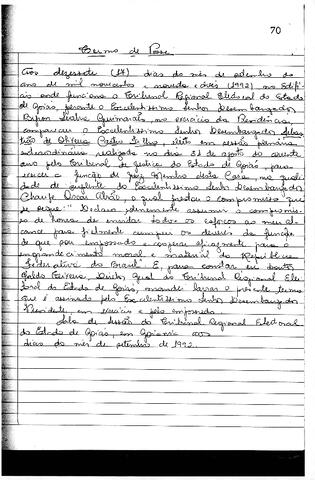 70
Termo de Posse
Aos dezessete (17) dias do mês de setembro do
ano de mil novecentos e noventa e dois (1992), no Edifí-
cio onde funciona o Tribunal Regional Eleitoral do Estado
de Goiás, perante o Excelentíssimo Senhor Desembargador
Byron Seabra Guimarães, no exercício da Presidência,
compareceu o Excelentíssimo Senhor Desembargador Sebas-
tião de Oliveira Castro Filho, eleito em sessão plenária
extraordinária realizada no dia 31 de agosto do corrente
ano pelo Tribunal de Justiça do Estado de Goiás, para
exercer a função de Juiz Membro desta Casa, na quali-
dade de suplente do Excelentíssimo Senhor Desembargador
Charife Oscar Abrão, o qual prestou o compromisso que
se segue: "Declaro solenemente assumir o compromis-
so de honra de envidar todos os esforços ao meu al-
cance para fielmente cumprir os deveres da função
de que sou empossado e cooperar eficazmente para o
engrandecimento moral e material da República
Federativa do Brasil". E, para constar eu, doutor
Geral do Tribunal Regional Elei-
toral do Estado de Goiás, mandei lavrar o presente termo
que é assinado pelo Excelentíssimo Senhor Desembargador
Presidente, em exercício e pelo empossado.
Sala de Sessão do Tribunal Regional Eleitoral
do Estado de Goiás, em Goiânia aos
dias do mês de setembro de 1992.